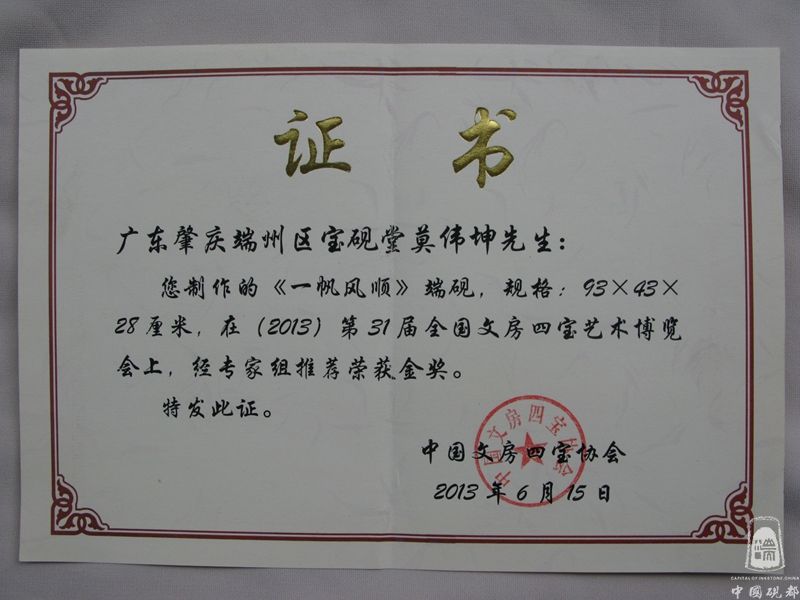 证书
广东肇庆端州区宝砚堂莫伟坤先生：
您制作的《一帆风顺》端砚，规格：93×43×
28厘米，在（2013）第31届全国文房四宝艺术博览
会上，经专家组推荐荣获金奖。
特发此证。
中国文房四宝协会
中国文房四宝协会
2013年6月15日
CAPITAL OF INKSTONE,CHINA
中國硯都